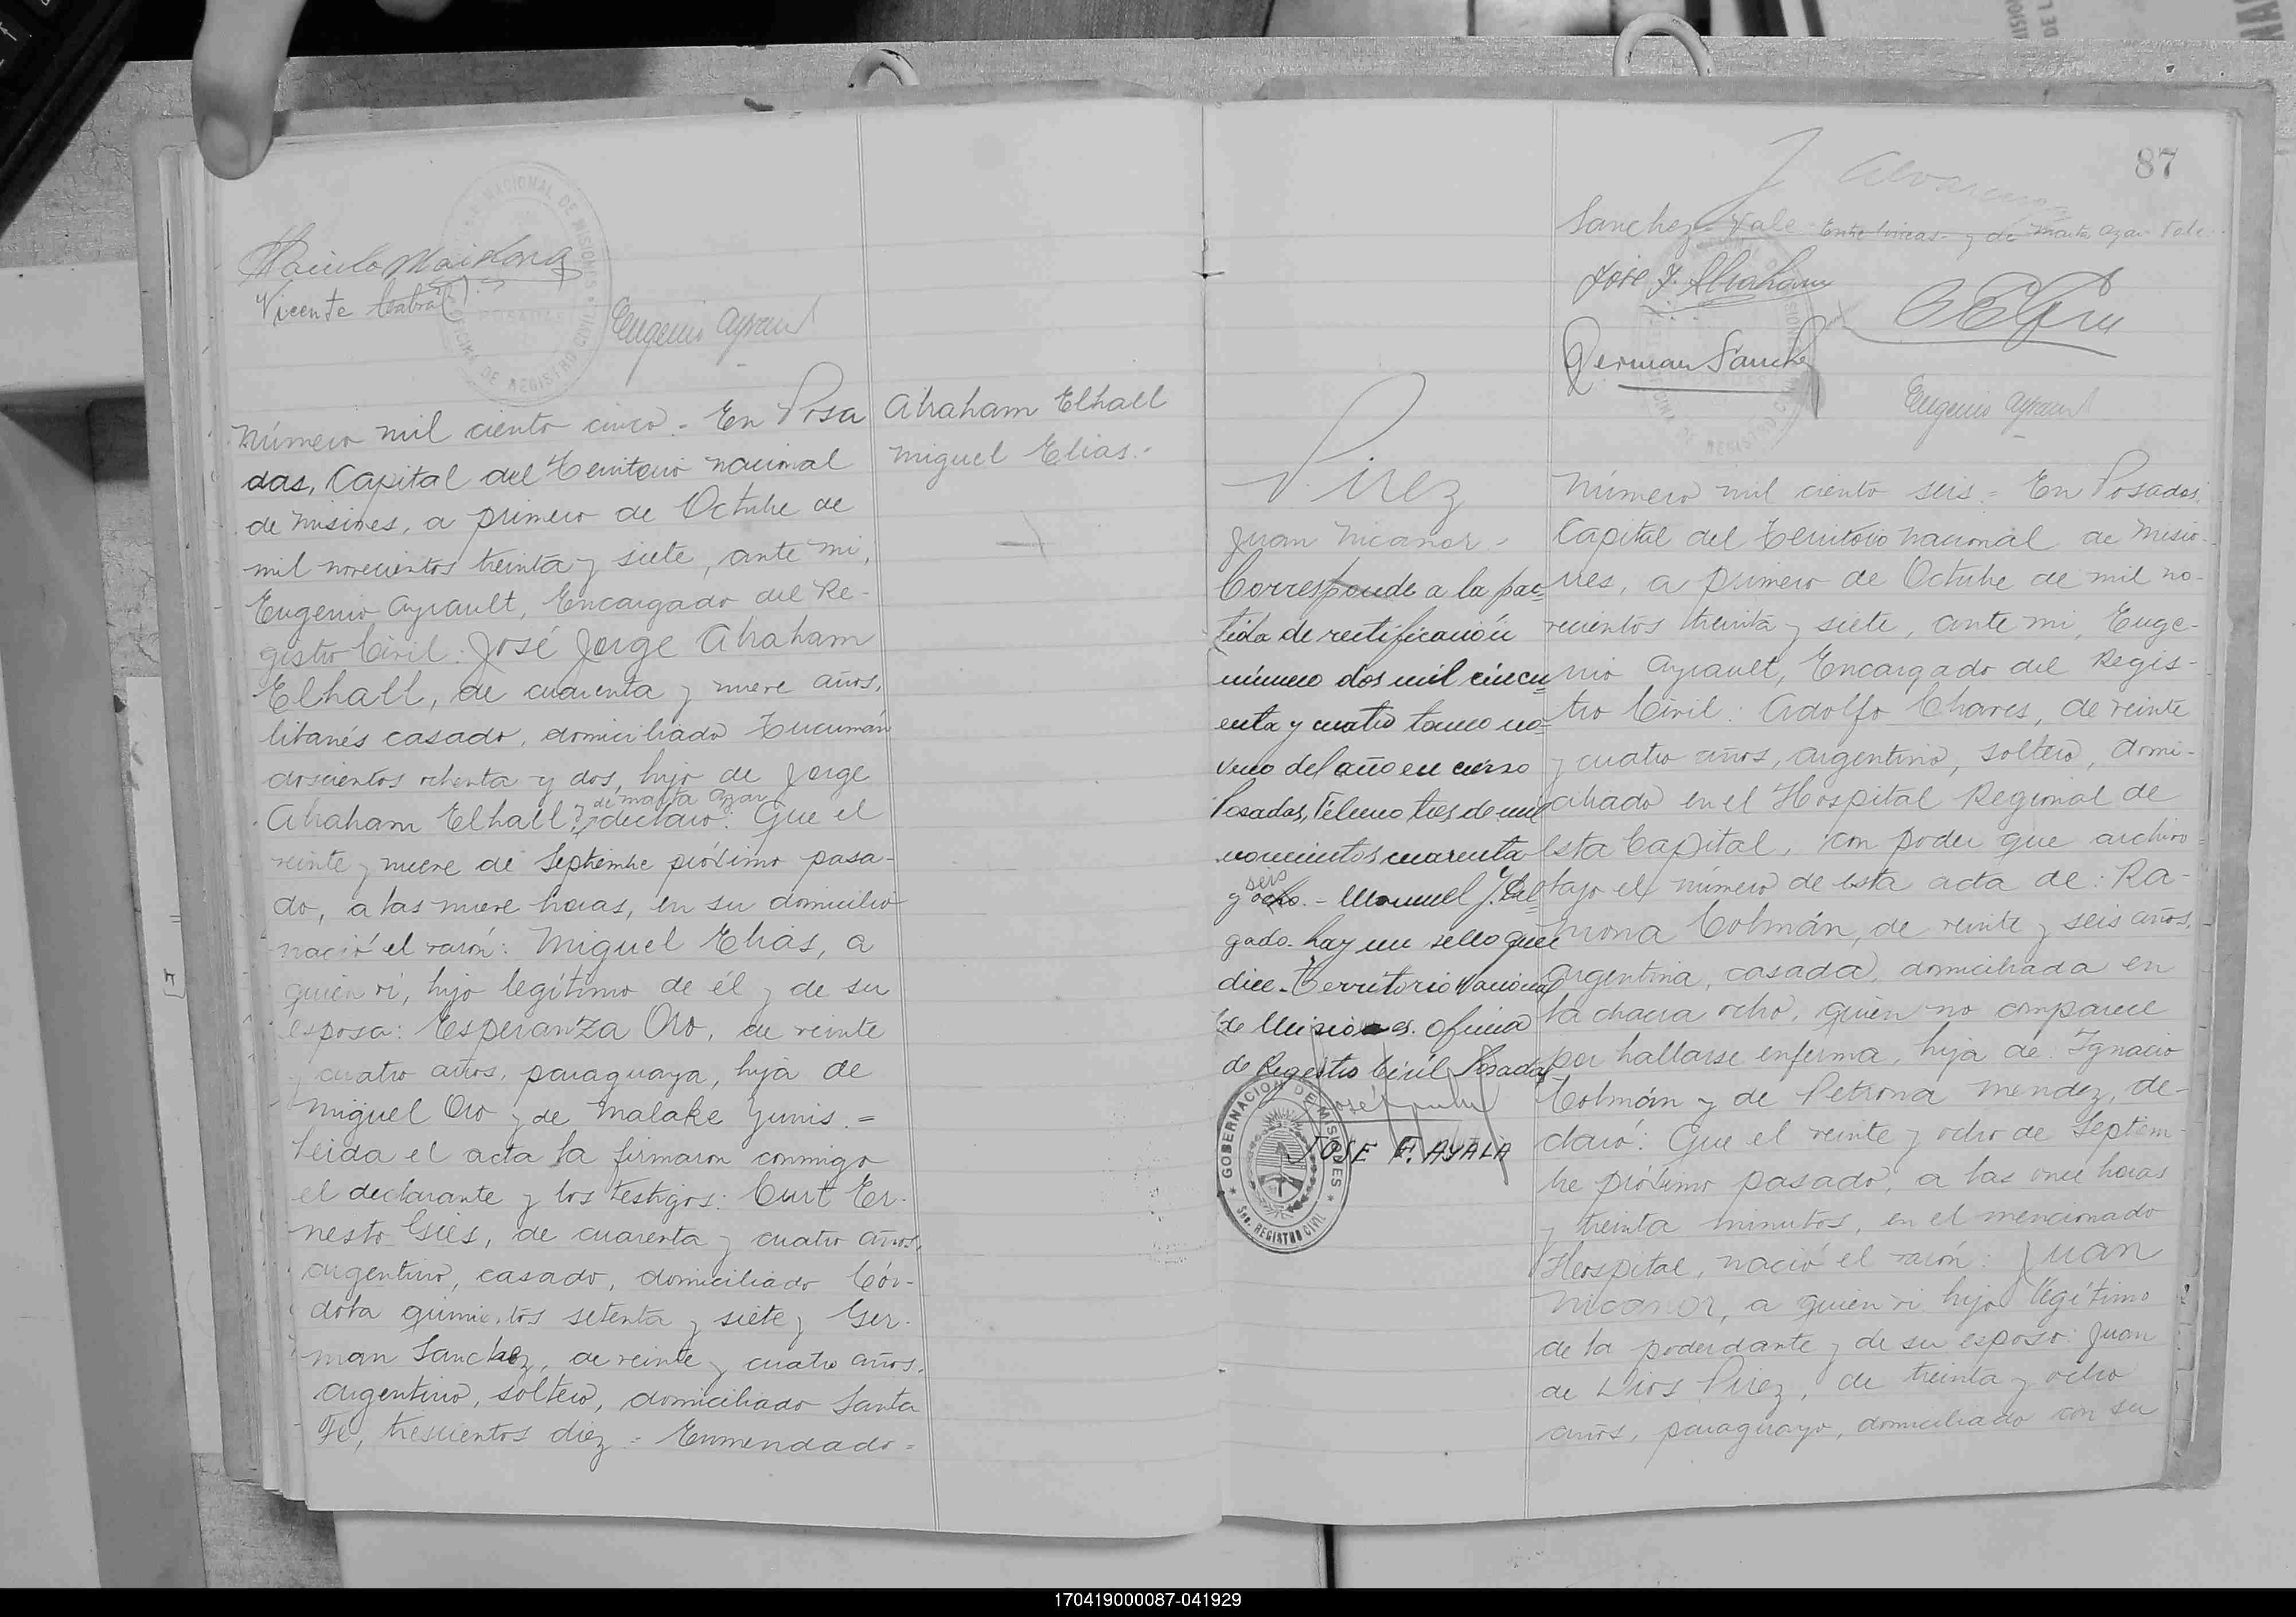 Vicente Cabral
Eugenio Ayrault
Número mil ciento cinco.- En Posa
das, Capital del Territorio nacional
de misines, a primero de Octubre de
mil novecientos treinta y siete, ante mi,
Eugenio Ayrault, Encargado del Re-
gistro Civil: José Jorge Abraham
Elhall, de cuarenta y nueve años,
libanés casado, domiciliado Tucumán
doscientos ochenta y dos, hijo de Jorge
de marta azar
Abraham Elhall y declaró: Que el
veinte y nueve de Septiembre próximo pasa-
do, a las nueve horas, en su domicilio
nació el varón: Miguel Elias, a
quien vi, hijo legítimo de él y de su
esposa: Esperanza Oro, de veinte
y cuatro años, paraguaya, hija de
Miguel Oro y de Malake Yunis.=
Leida el acta la firmaron conmigo
el declarante y los testigos: Curt Er-
nesto Gies, de cuarenta y cuatro años,
argentino, casado, domiciliado Cór-
doba quinientos setenta y siete y Ger-
man Sanchez, de veinte y cuatro años,
argentino, soltero, domiciliado Santa
Fe, trescientos diez = Enmendado=
Abraham Elhall
Miguel Elias.-
87
Sanchez- Vale- Entre lineas- y de Marta azar- Vale-
José J. Abraham
German Sanchez
Eugenio Ayrault
Pirez
Juan Nicanor.-
Corresponde a la par-
tida de rectificación
número dos mil cincu
enta y cuatro tomo no-
veno del año en curso
Posadas, Febrero tres de mil
novecientos cuarenta
seis
y ocho.- Manuel J. Del-
gado- hay un sello que
dice- Territorio Nacional
de Misiones. Oficina
de Registro Civil Posadas
JOSE F. AYALA
GOBERNACION DE MISIONES
Sec. REGISTRO CIVIL
Número mil ciento seis.= En Posadas,
Capital del Territorio nacional de Misio-
nes, a primero de Octubre de mil no-
vecientos treinta y siete, ante mi, Euge-
nio Ayrault, Encargado del Regis-
tro Civil: Adolfo Chaves, de veinte
y cuatro años, argentino, soltero, domi-
ciliado en el Hospital Regional de
esta Capital, con poder que archivo
bajo el número de esta acta de: Ra-
mona Colmán, de veinte y seis años,
argentina, casada, domiciliada en
la chacra ocho, quien no comparece
por hallarse enferma, hija de Ignacio
Colmán y de Petrona Mendez, de-
claró: Que el veinte y ocho de Septiem-
bre próximo pasado, a las once horas
y treinta minutos, en el mencionado
Hospital, nació el varón: Juan
Nicanor, a quien vi hijo legítimo
de la poderdante y de su esposo: Juan
de Dios Pirez, de treinta y ocho
años, paraguayo, domiciliado con su
170419000087-041929